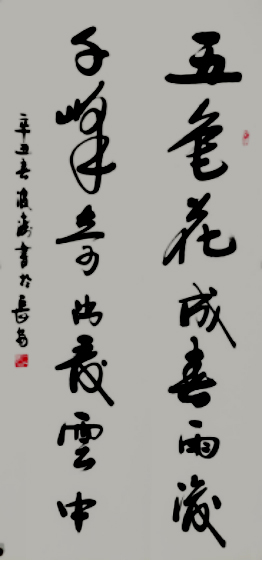 五色花成春雨後
千峰奇夏雲中
辛丑春書於長安